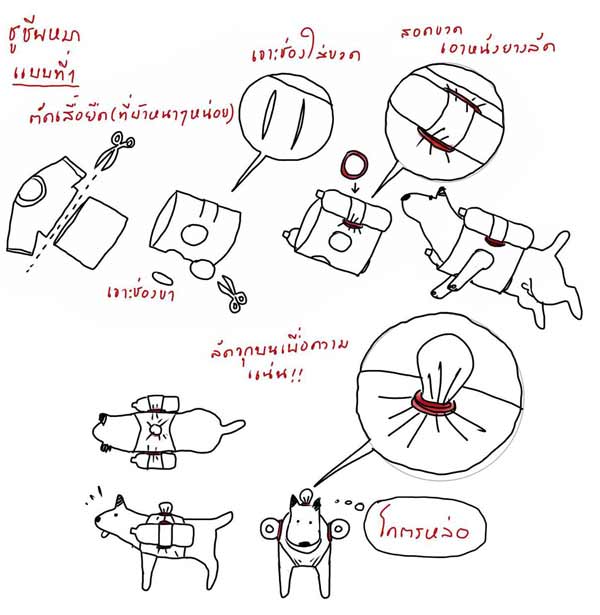 ชูชีพหมา
แบบที่ 1
ตัดเสื้อยืด(ที่ผ้าหนาๆหน่อย)
เจาะช่องใส่ขวด
สอดขวด
เอาหนังยางรัด
เจาะช่องขา
รัดจุกบนเพื่อความ
แน่น!!
โคตรหล่อ